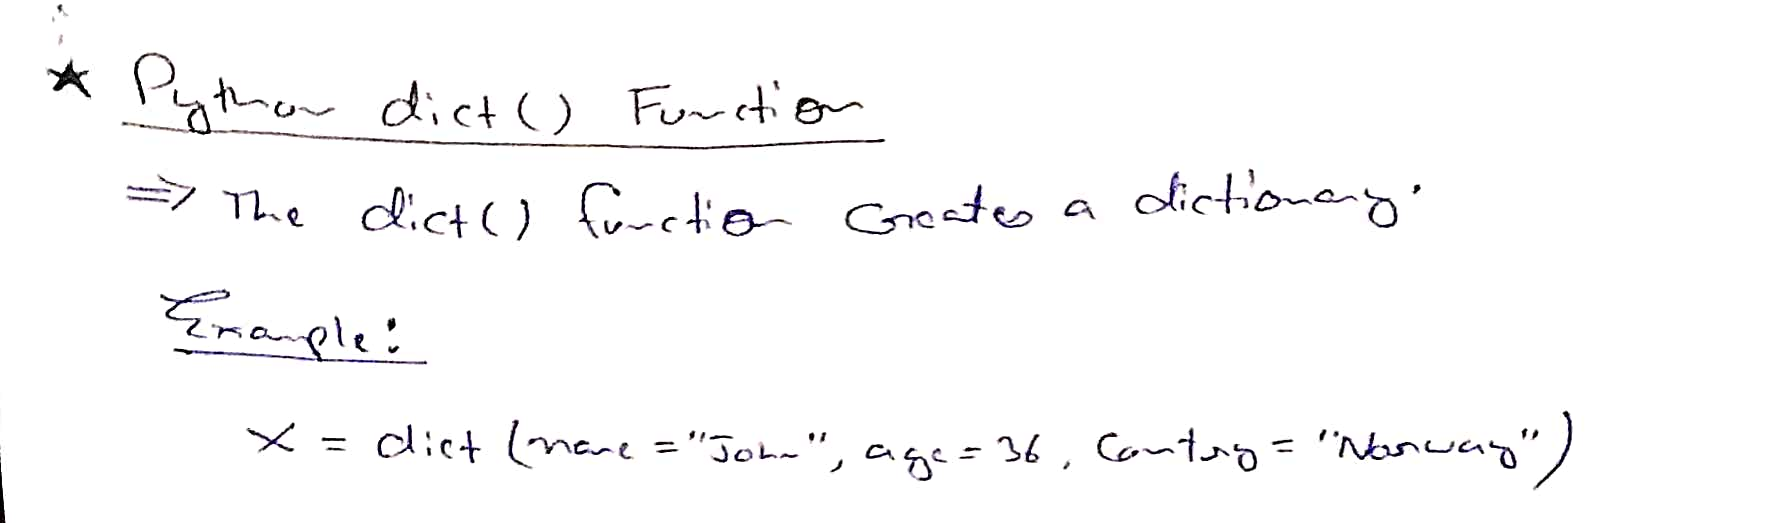 ★ Python dict() Function
⇒ The dict() function Creates a dictionary.
Example:
x = dict (name = "John", age = 36, Contry = "Norway")